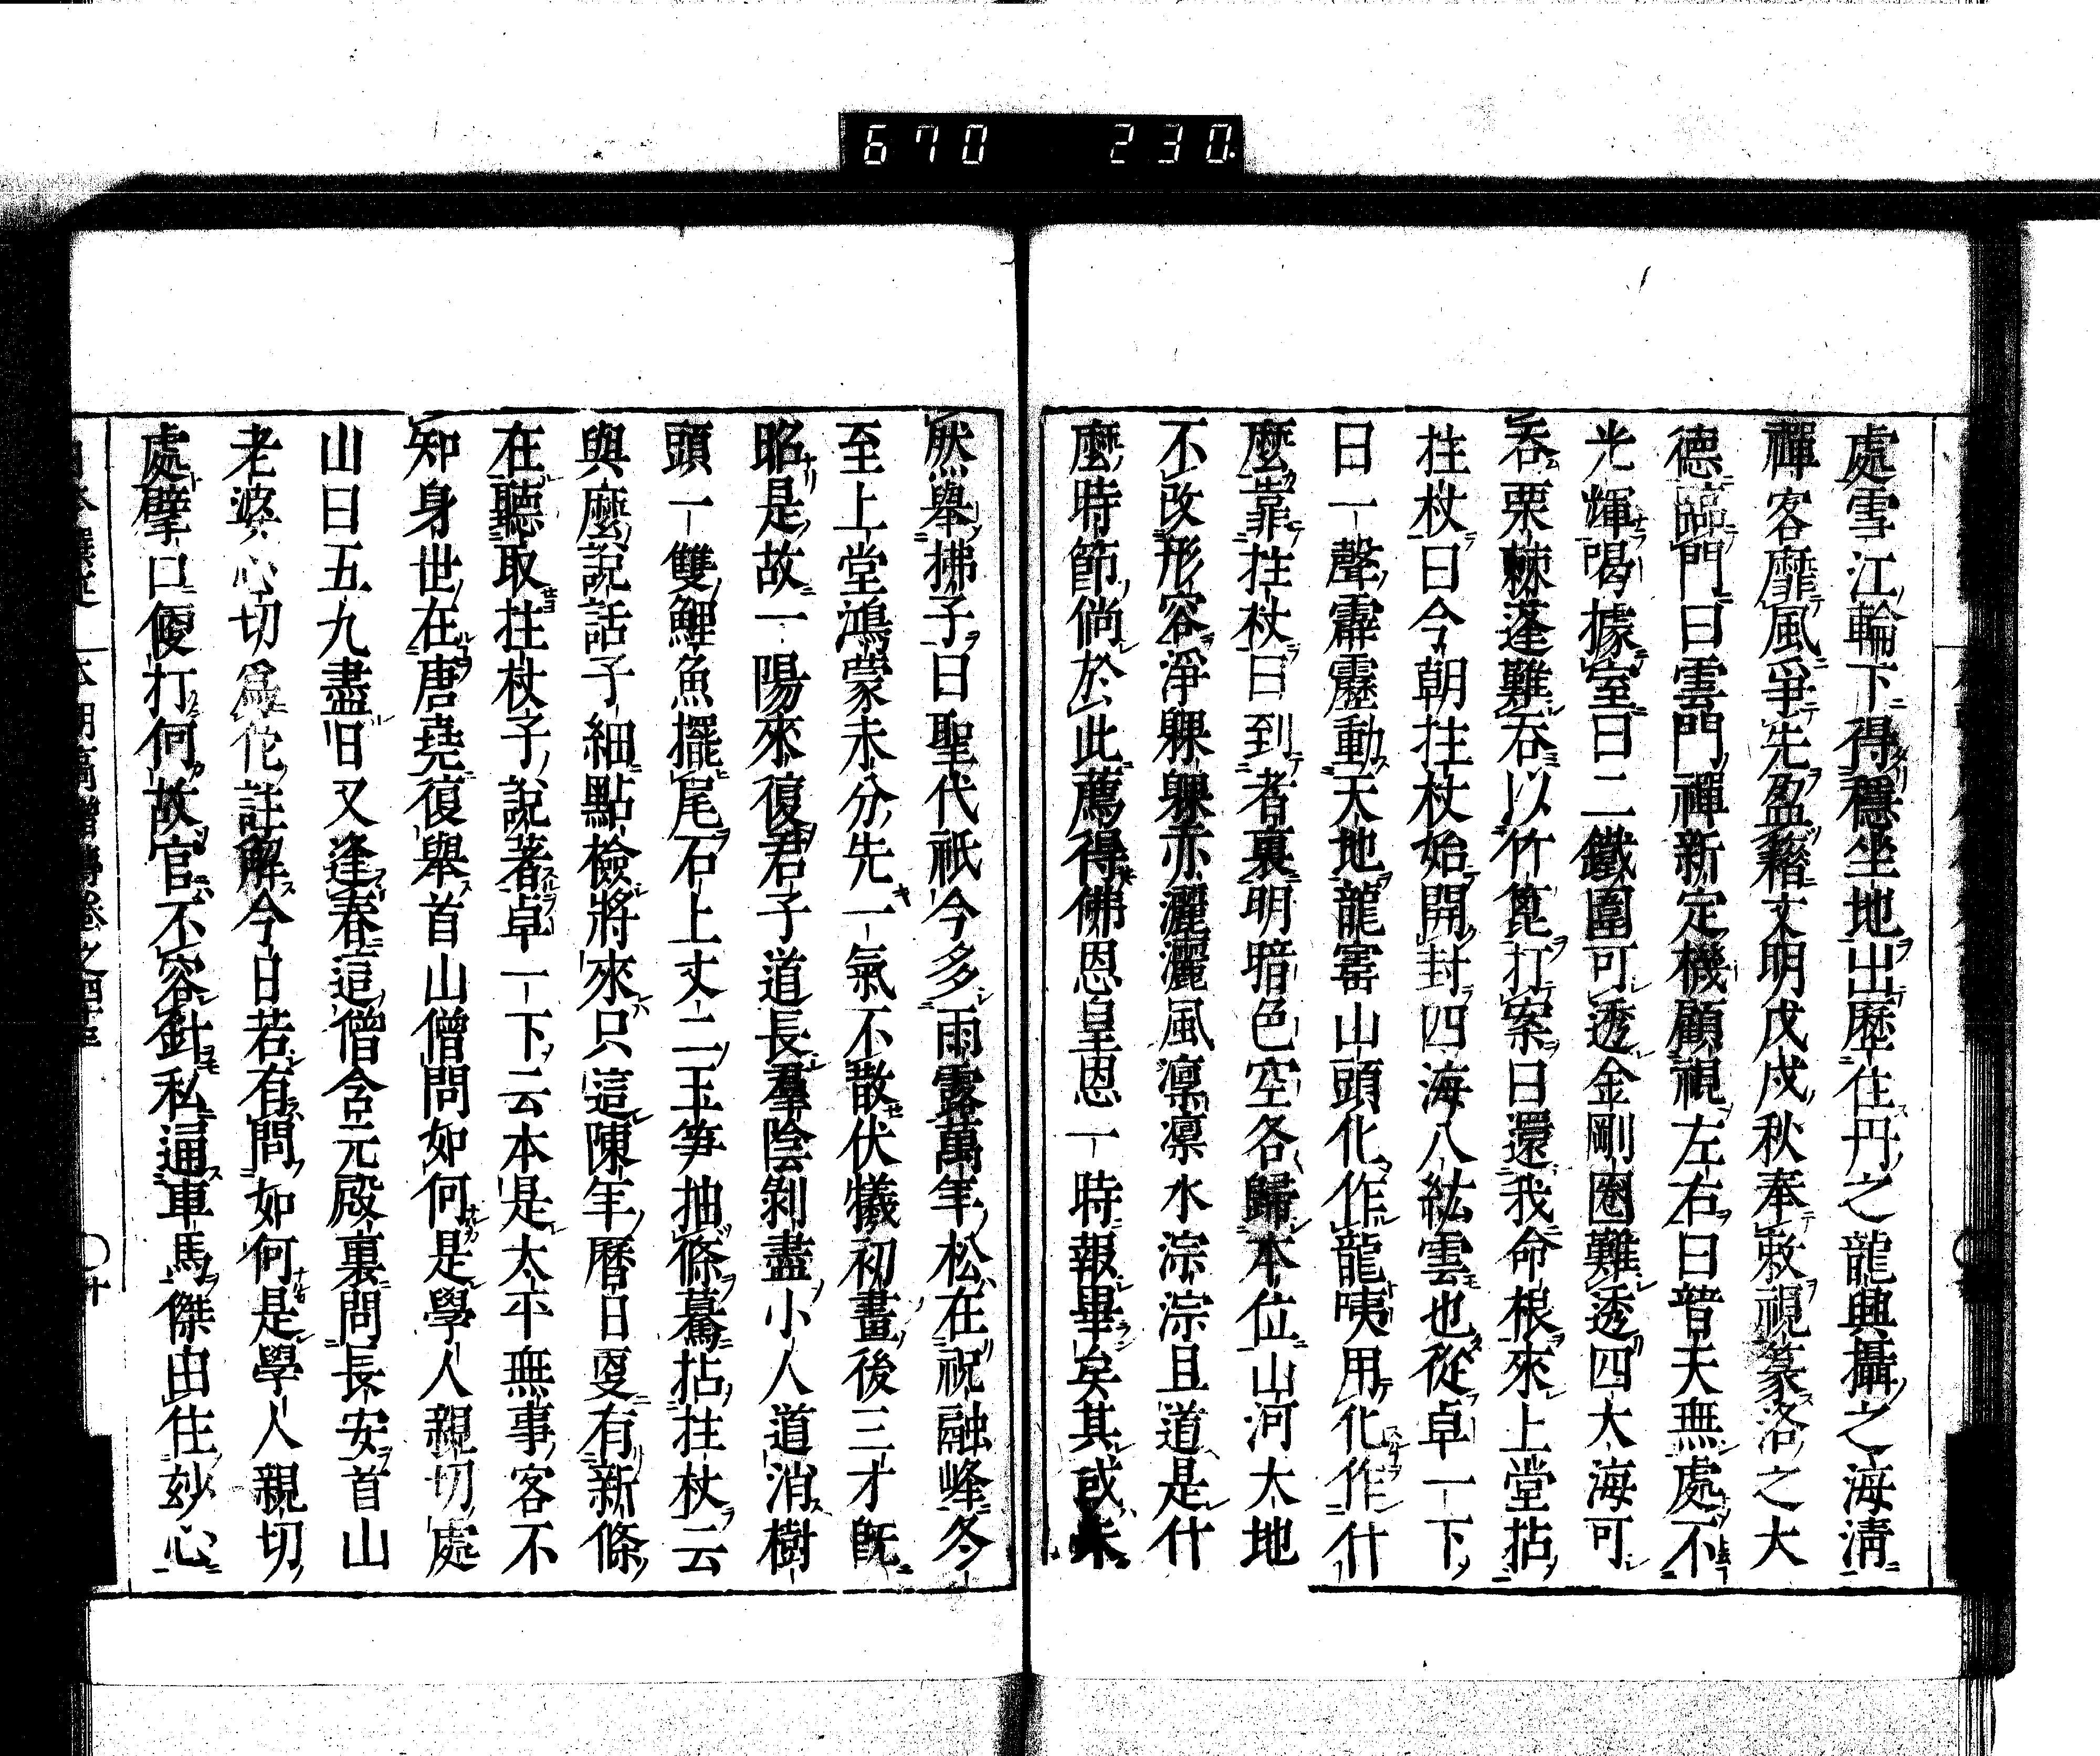 670 230
處雪江輪下得穩坐地出歷住丹之龍興攝之海淸
禪客靡風爭先盈籍文明戊戌秋奉敕視篆洛之大
德臨門曰雲門禪新定機顧視左右曰普天無處不
光輝揭據室曰二鐵圍可透金剛圈難透四大海可
吞栗棘蓬難吞以竹篦打案曰還我命根來上堂拈
拄杖曰今朝拄杖始開封四海八紘雲也從卓一下
曰一聲霹靂動天地龍寶山頭化作龍咦用化作什
麼靠拄杖曰到者裏明暗色空各歸本位山河大地
不改形容淨躶躶赤灑灑風凛凛水淙淙且道是什
麼時節倘於此薦得佛恩皇恩一時報畢矣其或未
然擧拂子曰聖代祇今多雨露萬年松在祝融峰冬
至上堂鴻蒙未分先一氣不散伏犧初畫後三才旣
昭是故一陽來復君子道長羣陰剝盡小人道消樹
頭一雙鯉魚擺尾石上丈二玉笋抽條驀拈拄杖云
與麼說話子細點檢將來只這陳年曆日更有新條
在聽取拄杖子說著卓一下云本是太平無事客不
知身世在唐堯復擧首山僧問如何是學人親切處
山曰五九盡日又逢春這僧含元殿裏問長安首山
老婆心切爲佗註解今日若有問如何是學人親切
處擘口便打何故官不容針私通車馬傑由住妙心
本朝高僧傳卷之四十